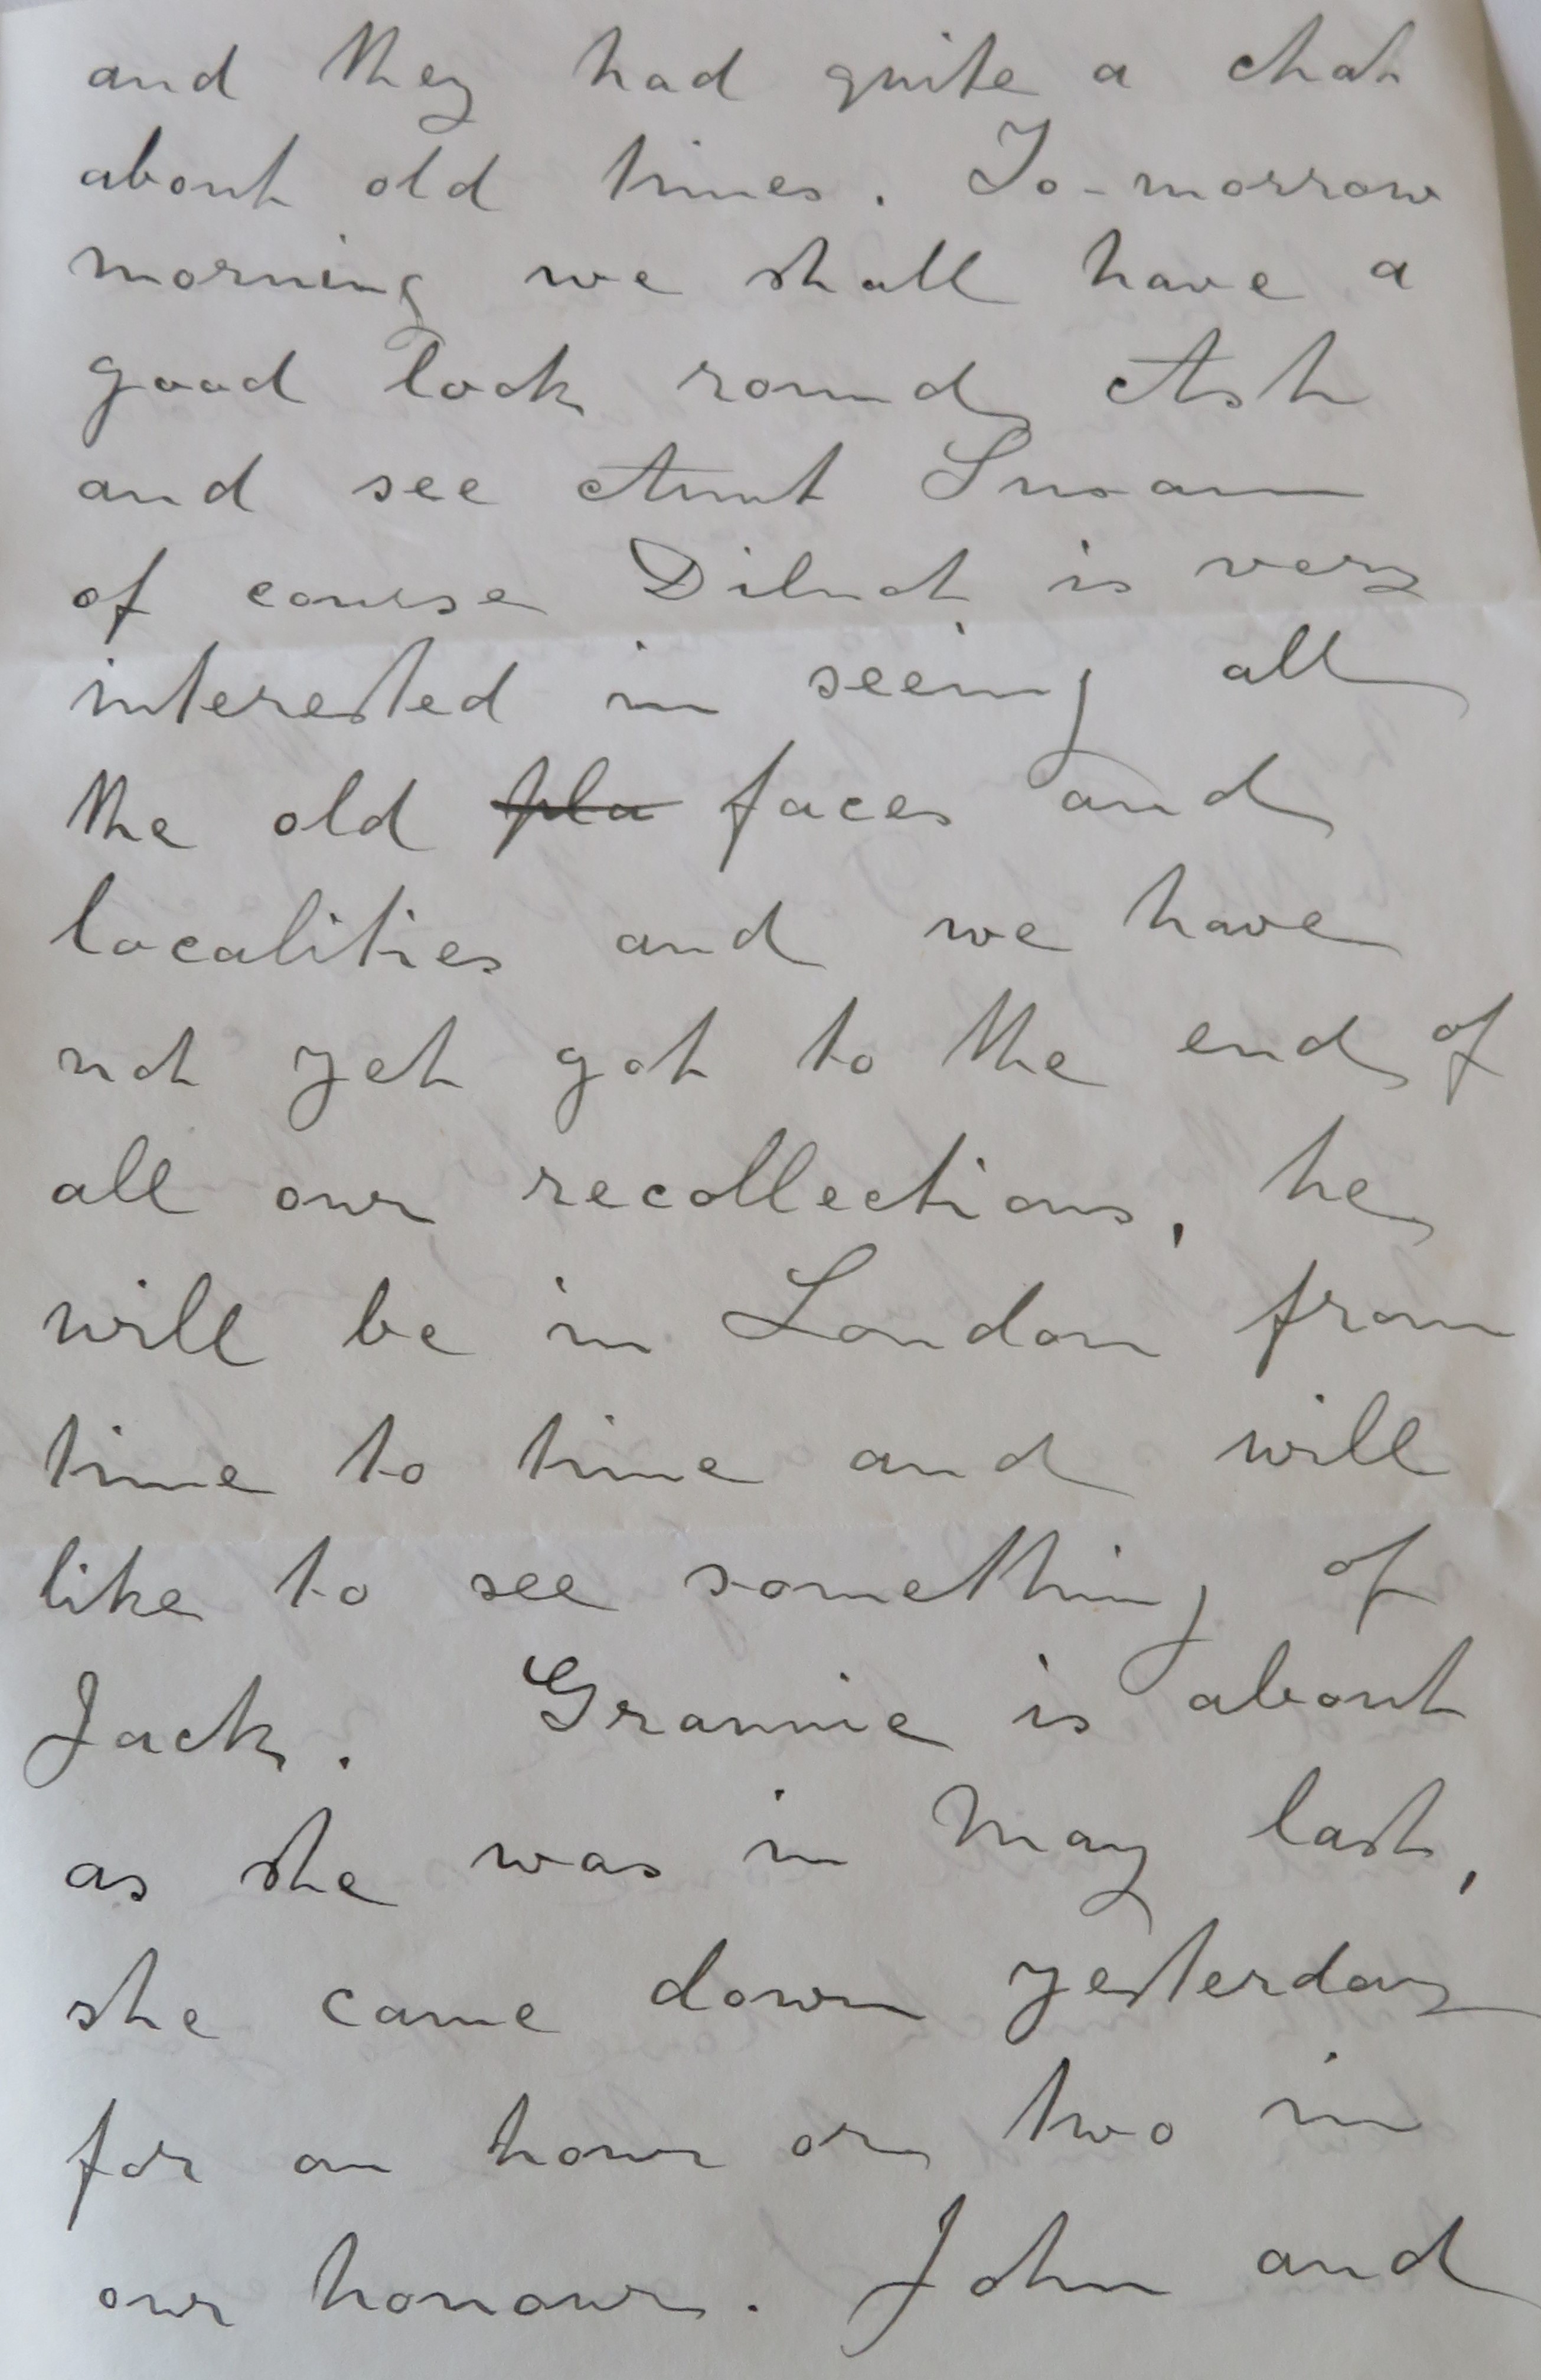 and they had quite a chat
about old times. To-morrow
morning we shall have a
good look round Ash
and see Aunt Susan
of course Dilnot is very
interested in seeing all
the old pla faces and
localities and we have
not yet got to the end of
all our recollections, he
will be in London from
time to time and will
like to see something of
Jack. Grannie is about
as she was in May last,
she came down yesterday
for an hour or two in
our honour. John and